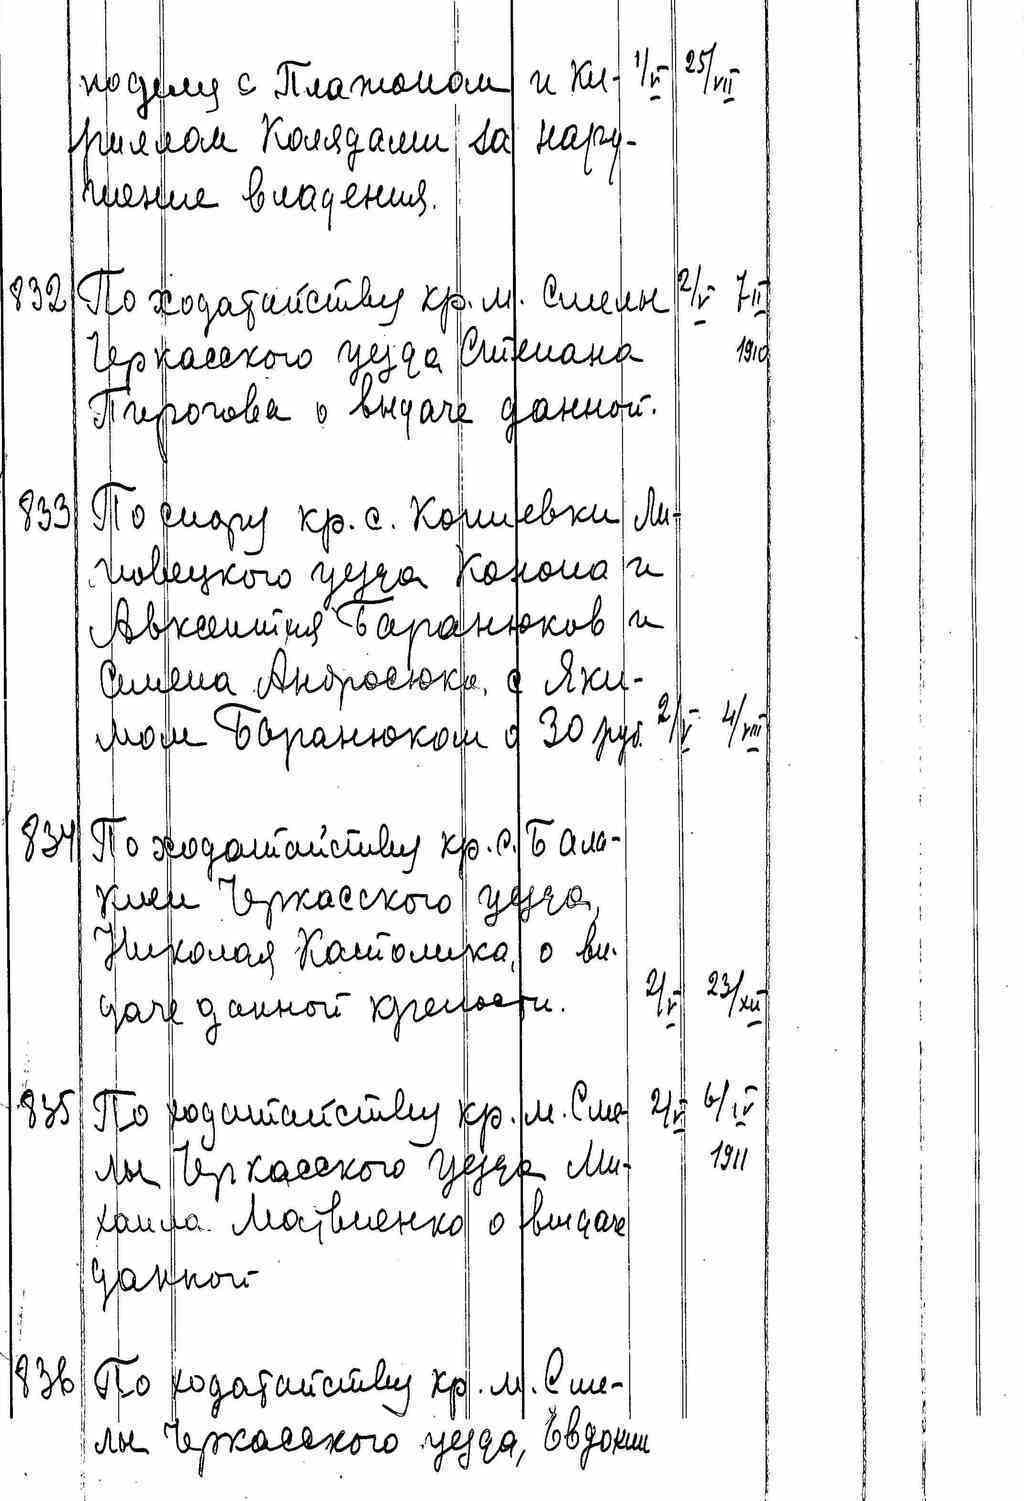 поделя с Платоном и Ки- 1/V 25/VII
риллом Колядами за нару-
шение владения.
832 По ходатайству кр. м. Смелы 2/V 7/II
Черкасского уезда Степана 1910
Пирогова о выдаче данной.
833 По спору кр. с. Копиевки Ли-
повецкого уезда Конона и
Авксентия Баранюков и
Семена Андросюка с Яки-
мом Баранюком о 30 руб. 2/V 4/VIII
834 По ходатайству кр. с. Бала-
клеи Черкасского уезда,
Николая Католика, о вы-
даче данной крепости. 2/V 23/XII
835 По ходатайству кр. м. Сме- 2/V 6/IV
лы Черкасского уезда Ми- 1911
хаила Матвиенко о выдаче
данной
836 По ходатайству кр. м. Сме-
лы Черкасского уезда, Евдокии